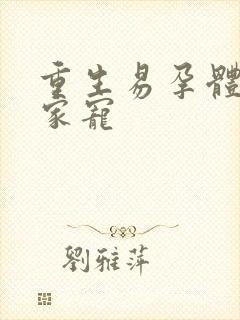 重生易孕體
家寵
劉雅萍